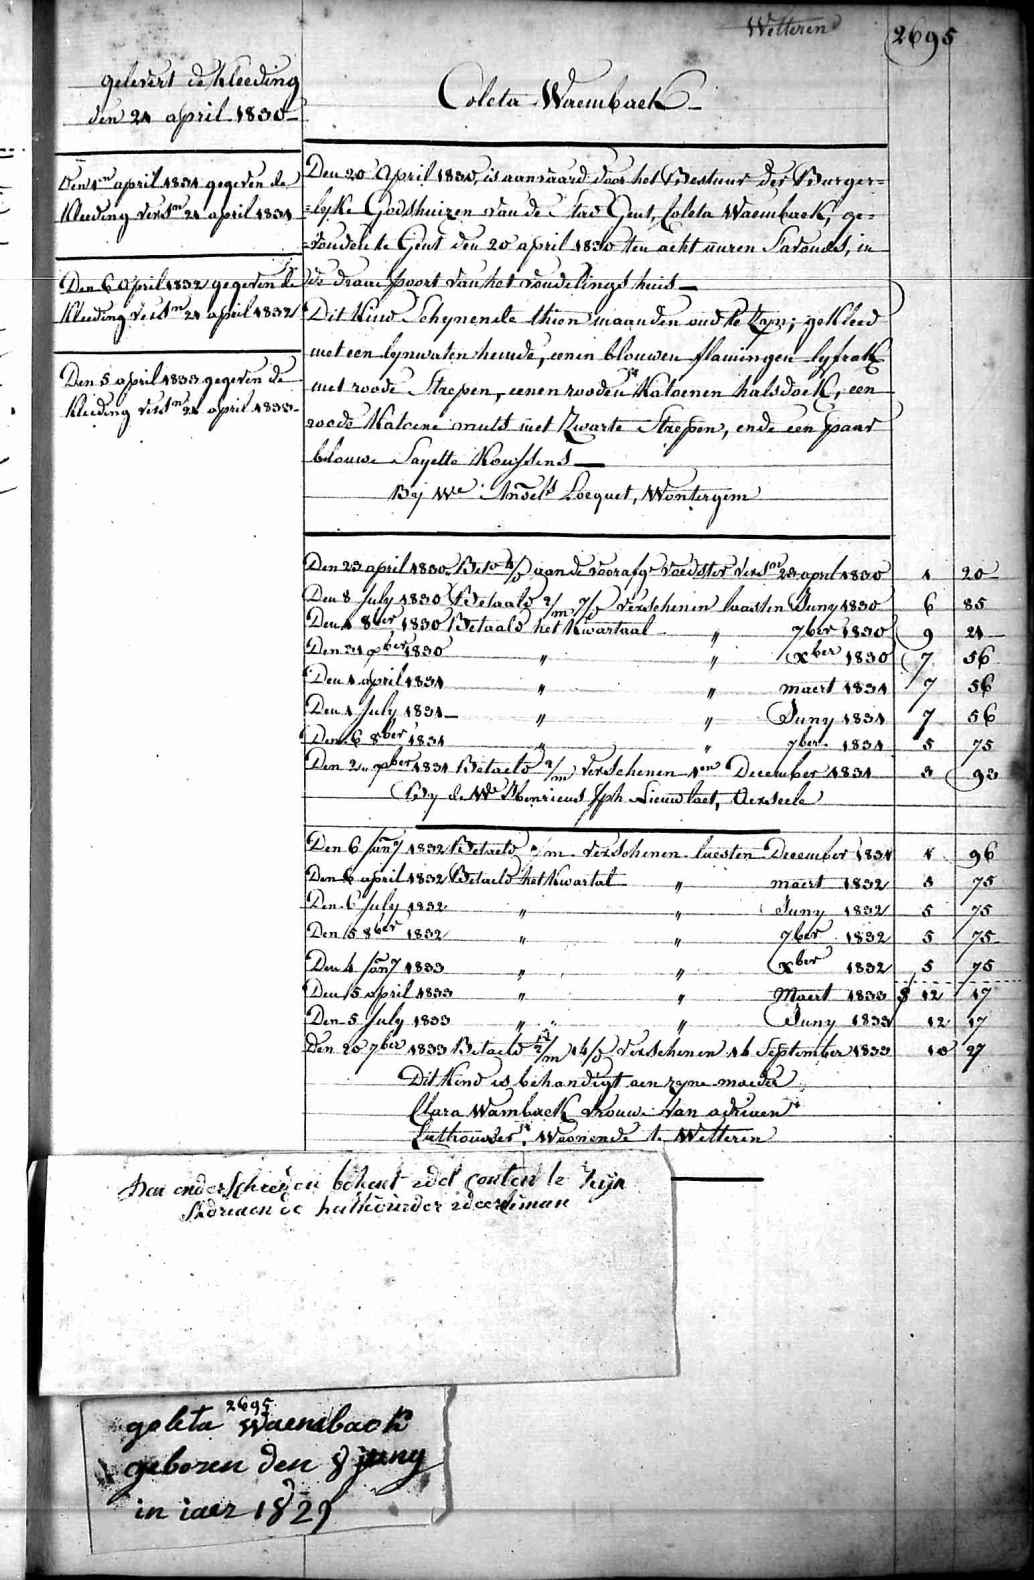 Wetteren
2695
gelevert de kleeding
den 21 april 1830
Coleta Waembaek
Den 1en april 1831 gegeven de
kleeding verst 21 april 1831
Den 6 april 1832 gegeven de
kleeding verst 21 april 1832
Den 5 april 1833 gegeven de
kleeding verst 21 april 1833
Den 20 April 1830, is aanvaard door het Bestuur der Burger=
=lyke Godshuizen van de Stad Gent, Coleta Waembaek, ge=
=vonden te Gent den 20 april 1830 ten acht uuren S'avonds, in
de draai poort van het vondelings huis
Dit Kind Schynende thien maanden oud te zyn; gekleed
met een lynwaten hemde, eenen blouwen flamingen lyfrok
met roode Strepen, eenen rooden Katoenen halsdoek, een
roode Katoene muts met Zwarte Strepen, ende een paar
blouwe Sayette Koussens
By We Locquet, Wontergem
Den 23 april 1830 aan de voorafge voedster verst 23 april 1830 1 20
Den 8 July 1830 Betaald 2/m 7/ verschenen laasten Juny 1830 6 85
Den 1 8ber 1830 Betaald het Kwartaal " 7ber 1830 9 21
Den 31 xber 1830 " " xber 1830 7 56
Den 1 april 1831 " " maert 1831 7 56
Den 1 July 1831 " " Juny 1831 7 56
Den 6 8ber 1831 " " 7ber 1831 5 75
Den 2 xber 1831 Betaeld 2/m verschenen 1en December 1831 3 93
By de We Henricus Jph Nieuwlaet, Aerseele
Den 6 Jany 1832 Betaeld /m verschenen laesten December 1831 1 96
Den 6 april 1832 Betaeld het Kwartal " maert 1832 5 75
Den 6 July 1832 " " Juny 1832 5 75
Den 15 8ber 1832 " " 7ber 1832 5 75
Den 4 Jany 1833 " " xber 1832 5 75
Den 15 april 1833 " " Maert 1833 12 17
Den 5 July 1833 " " Juny 1833 12 17
Den 20 7ber 1833 Betaeld 2/m 16/ verschenen 16 September 1833 10 27
Dit Kind is behandigt aen zyne moeder
Clara Wambaek vrouwe van adriaen
Luthouwer, Woonende te Wetteren
onderschreven bekent content te zijn
2695
goleta Waemback
geboren den 8 juny
in iaer 1829